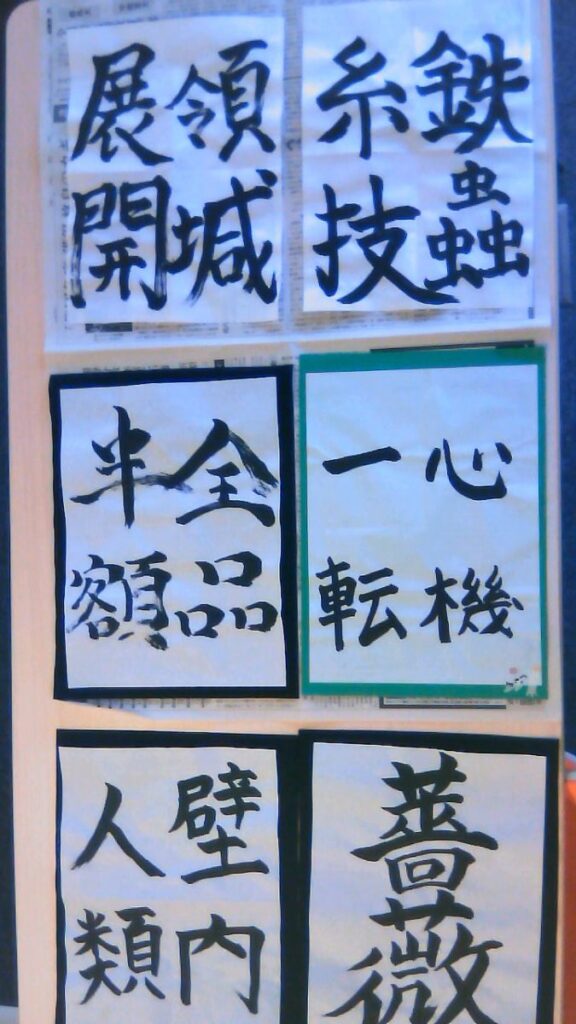 鉄蟲
糸技
領堿
展開
心機
一転
全品
半額
薔薇
壁内
人類